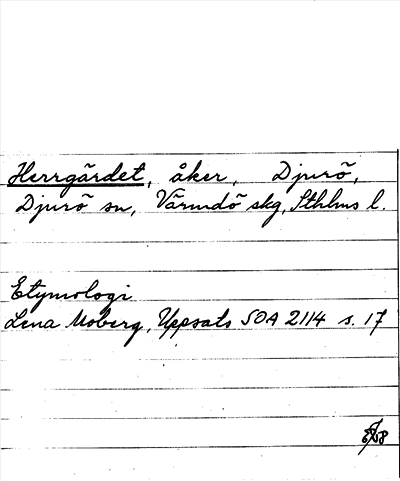 Herrgärdet, åker, Djurö,
Djurö sn, Värmdö skg, Sthlms l.
Etymologi
Lena Moberg, Uppsats SOA 2114 s. 17